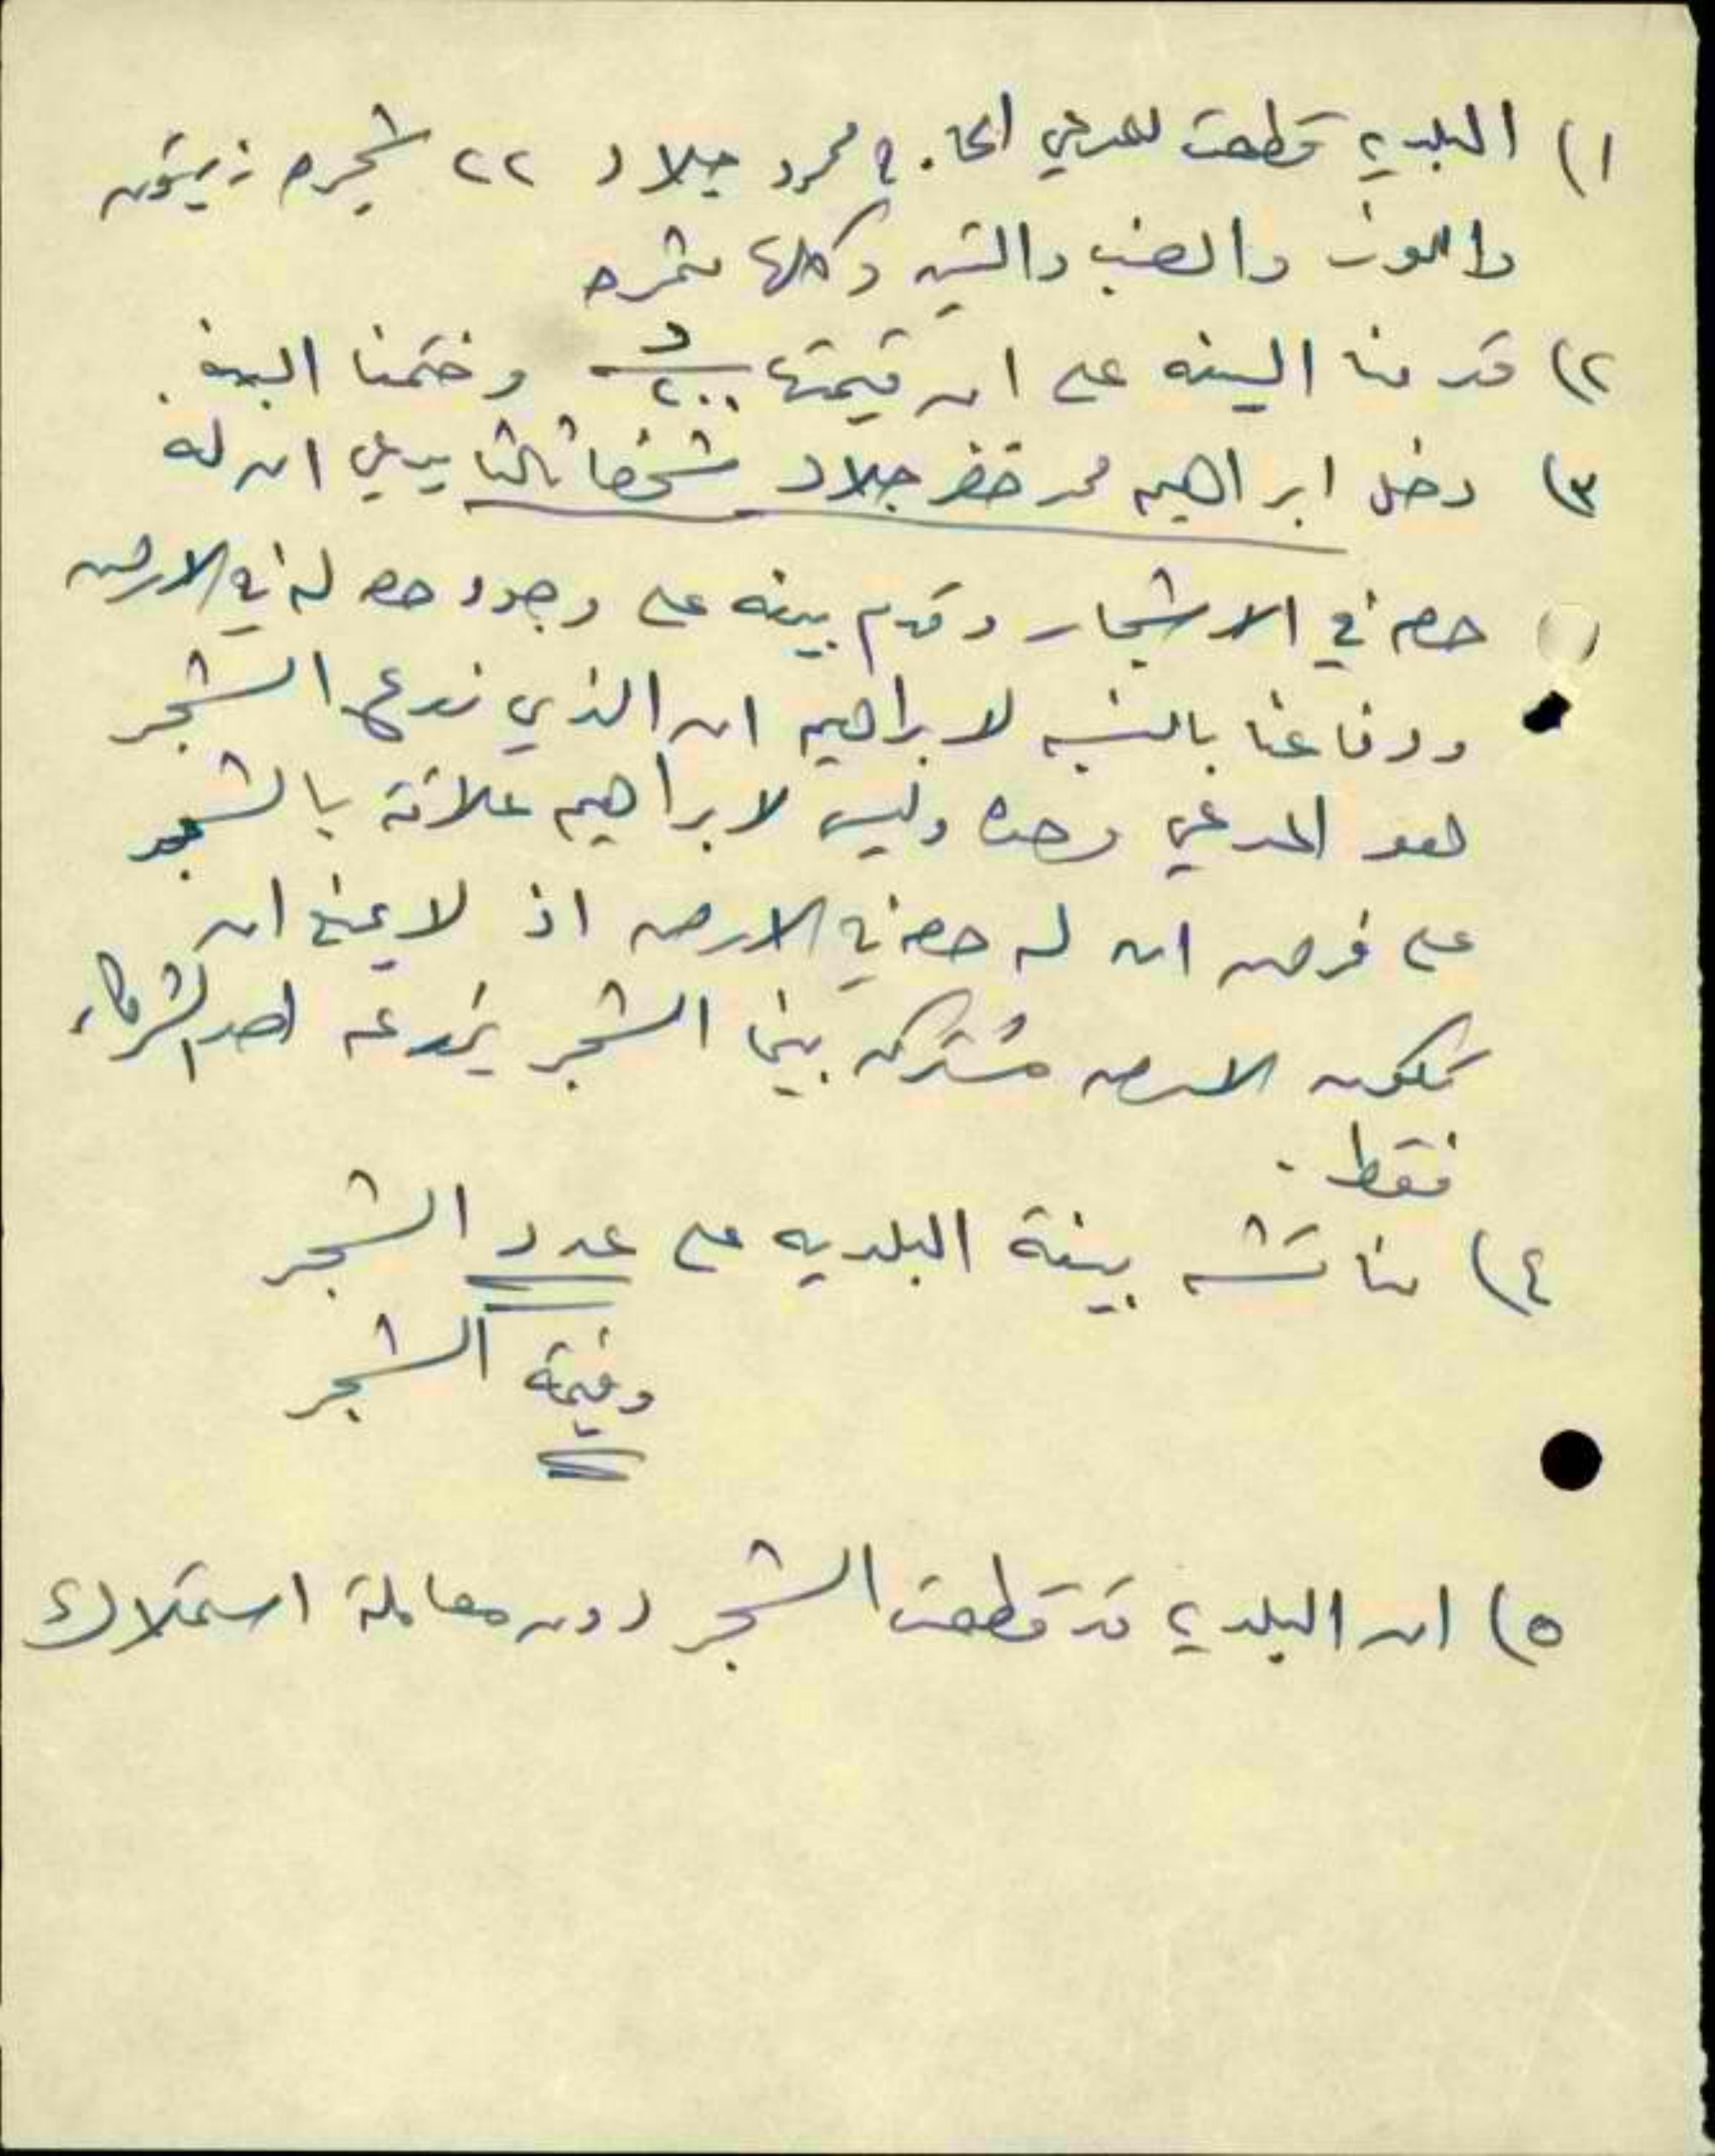 ١) البلديه قطعت للمدعي الحاج محمود جلاد ٢٢ شجره زيتون
واللوز والعنب والتين وكلها مثمره
٢) قدمنا البينه على ان قيمتها ٢٠٠ د وختمنا البينه.
٣) دخل ابراهيم محمد خضر جلاد شخصا ثالثا يدعي ان له
حصه في الاشجار وقدم بينه على وجود حصه له في الارض
ودفاعنا بالنسبه لابراهيم ان الذي زرع الشجر
هو المدعي وحده وليس لابراهيم علاقة بالشجر
على فرض ان له حصه في الارض اذ لا يمنع ان
تكون الارض مشتركه بينما الشجر يزرعه احد الشركاء
فقط.
٤) مناقشه بينة البلديه على عدد الشجر
وقيمة الشجر
٥) ان البلديه قد قطعت الشجر دون معاملة استملاك